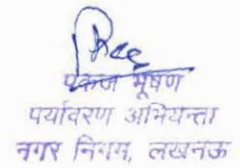 पंकज भूषण
पर्यावरण अभियन्ता
नगर निगम, लखनऊ